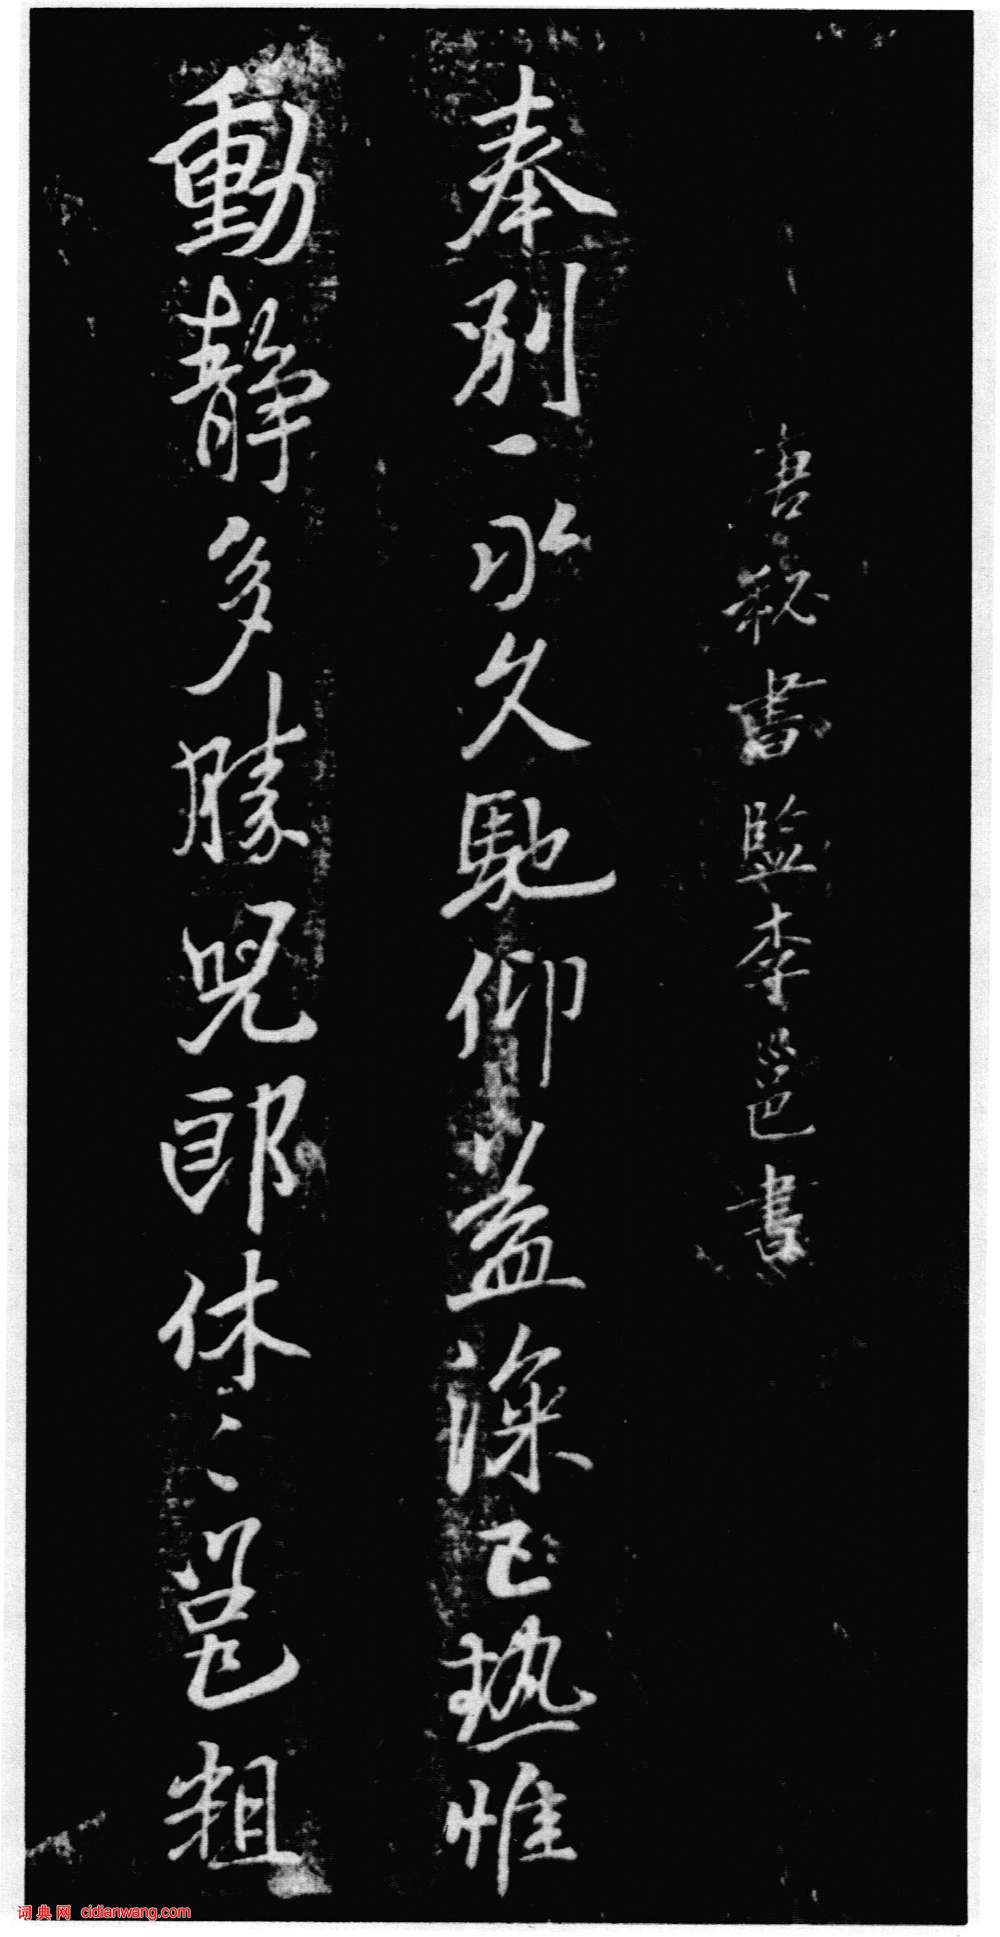 唐秘書監李邕書
奉別一以久馳仰益深正熱惟
動靜多勝兒郎休〻邕粗
词典网 cidianwang.com